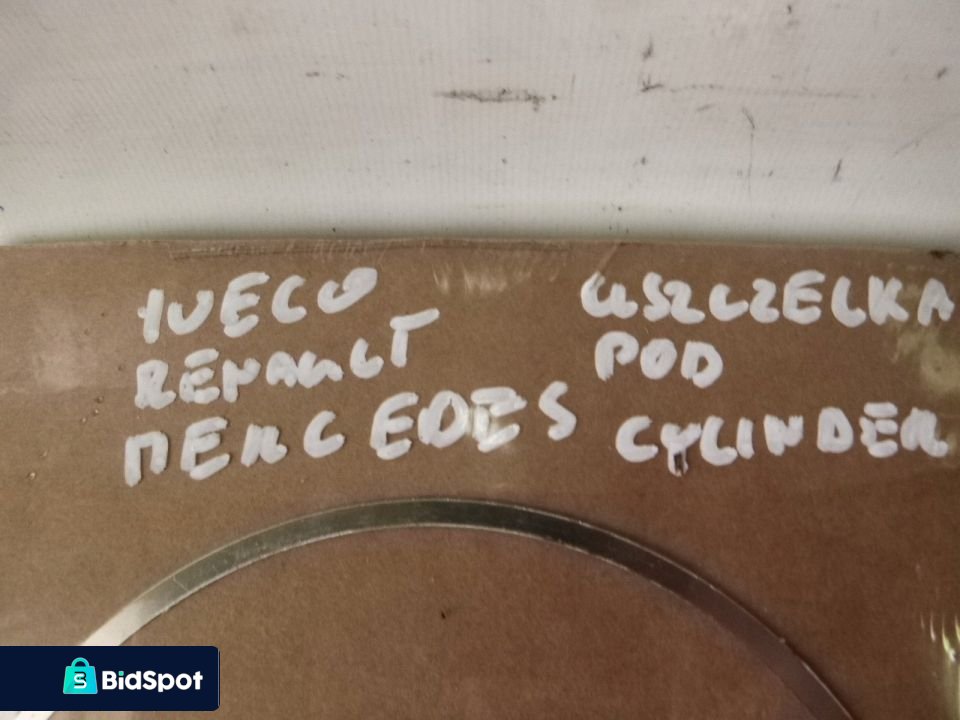 IVECO
RENAULT
MERCEDES
USZCZELKA
POD
CYLINDER
BidSpot